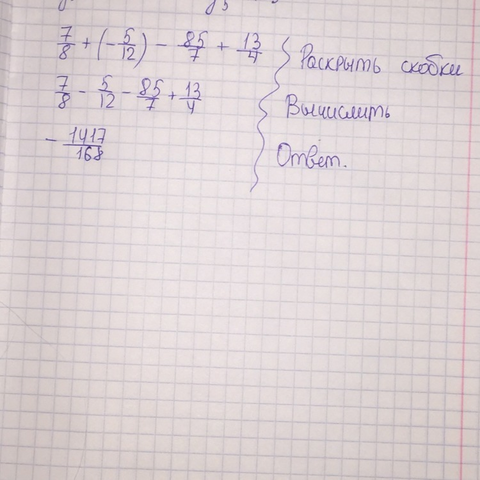 7/8 + (-5/12) - 85/7 + 13/4
Раскрыть скобки
7/8 - 5/12 - 85/7 + 13/4
Вычислить
- 1417/168
Ответ.